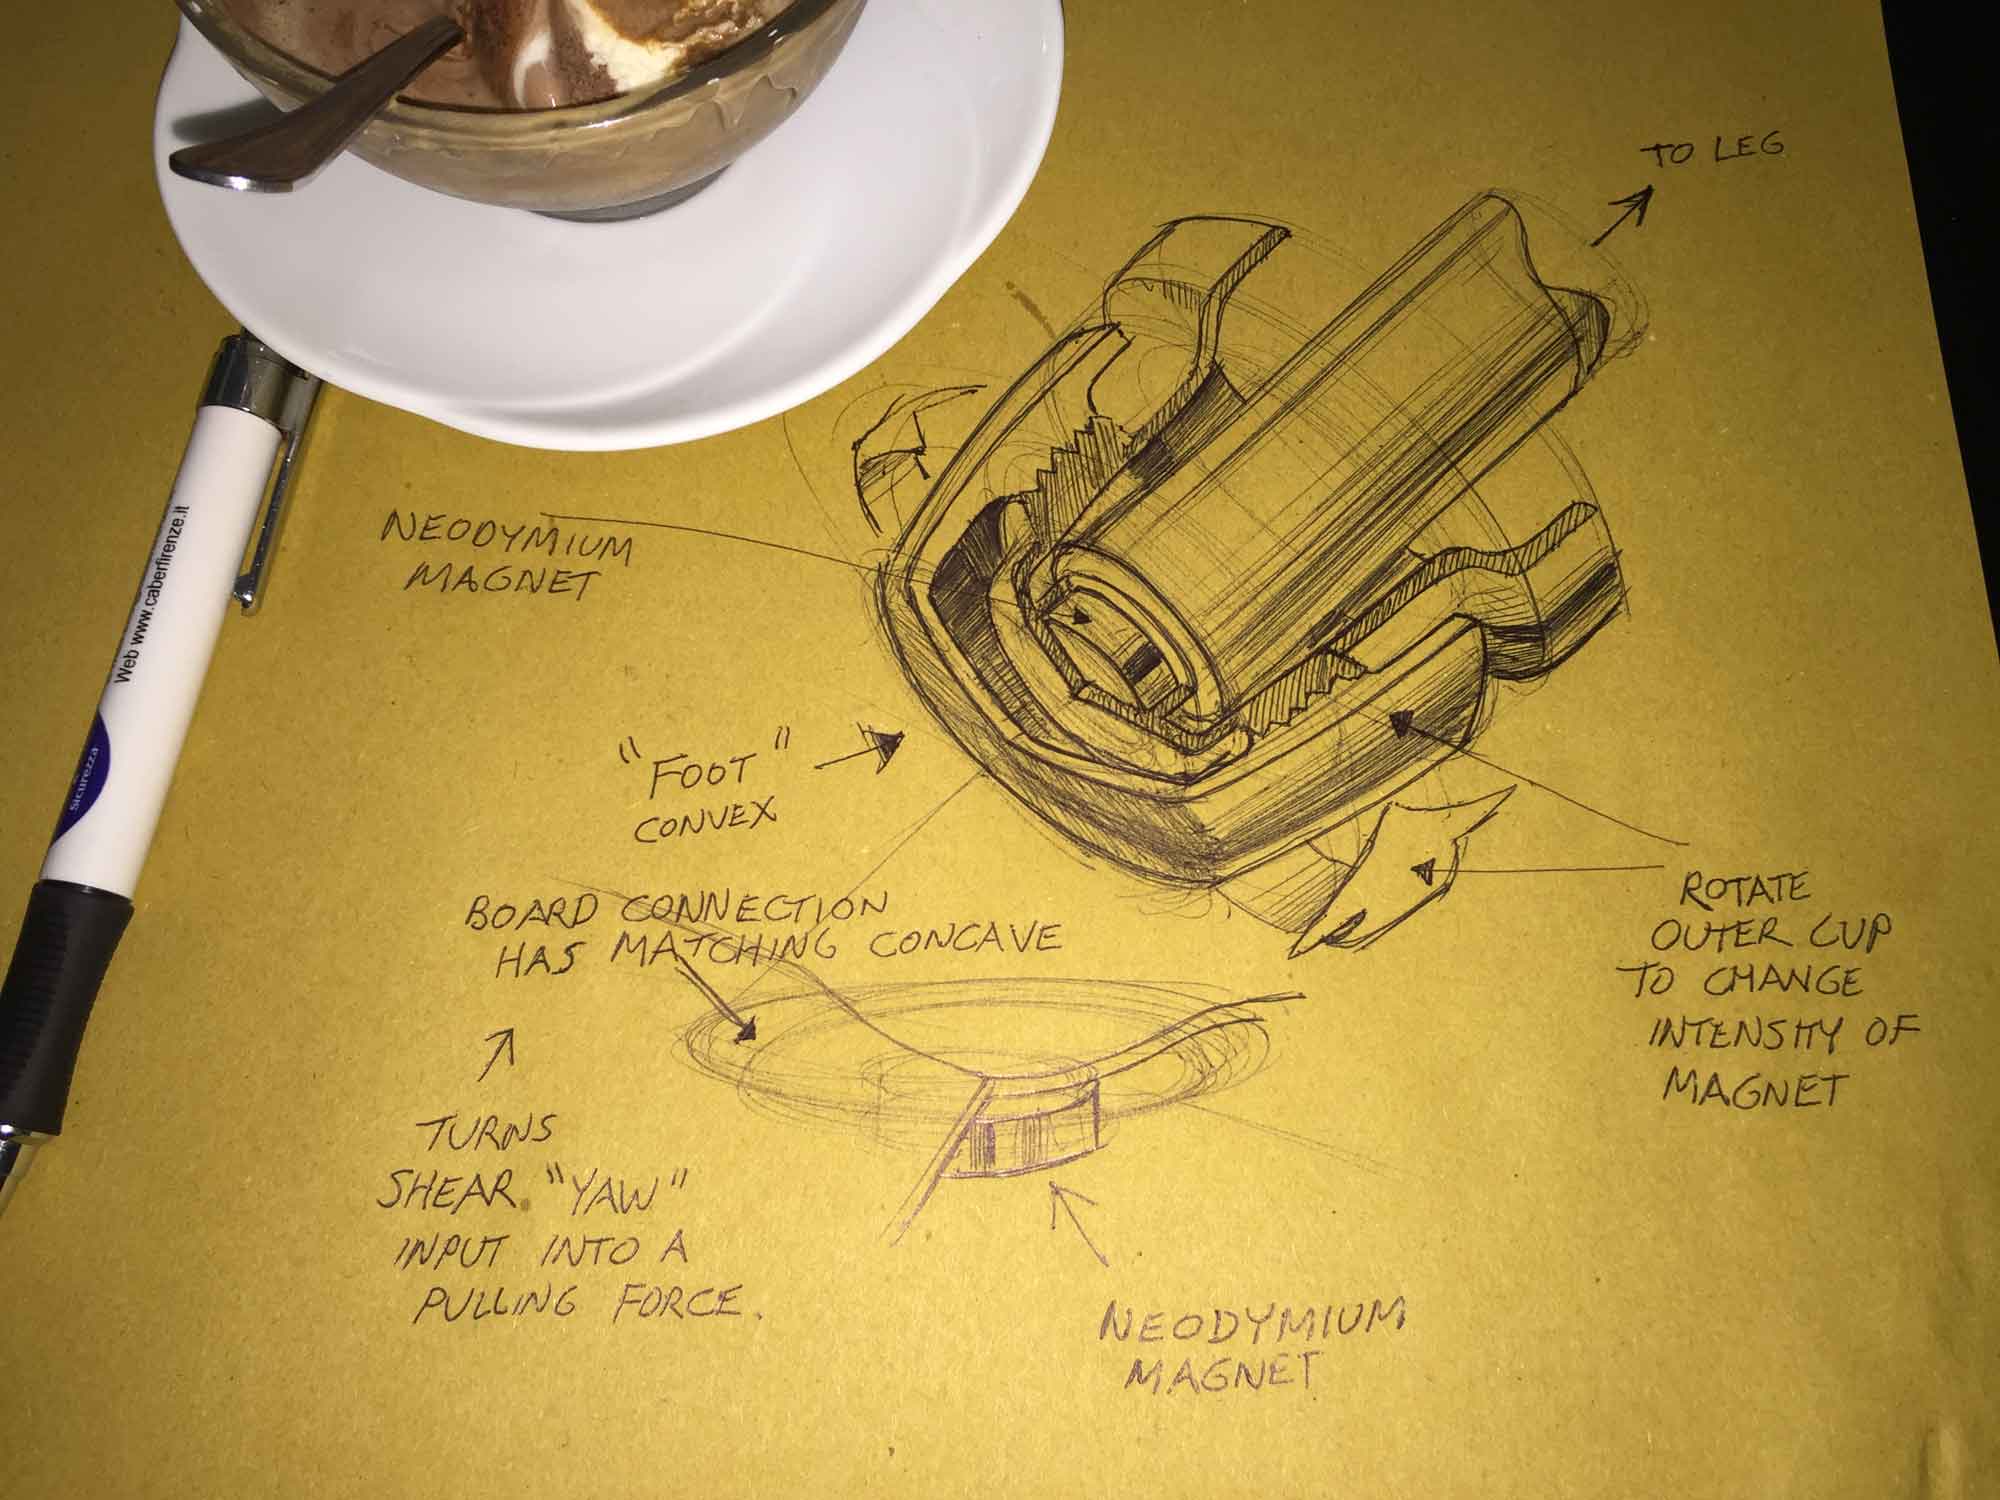 TO LEG
NEODYMIUM
MAGNET
"FOOT"
CONVEX
BOARD CONNECTION
HAS MATCHING CONCAVE
TURNS
SHEAR "YAW"
INPUT INTO A
PULLING FORCE.
ROTATE
OUTER CUP
TO CHANGE
INTENSITY OF
MAGNET
NEODYMIUM
MAGNET
Web www.caberfirenze.it
sicurezza